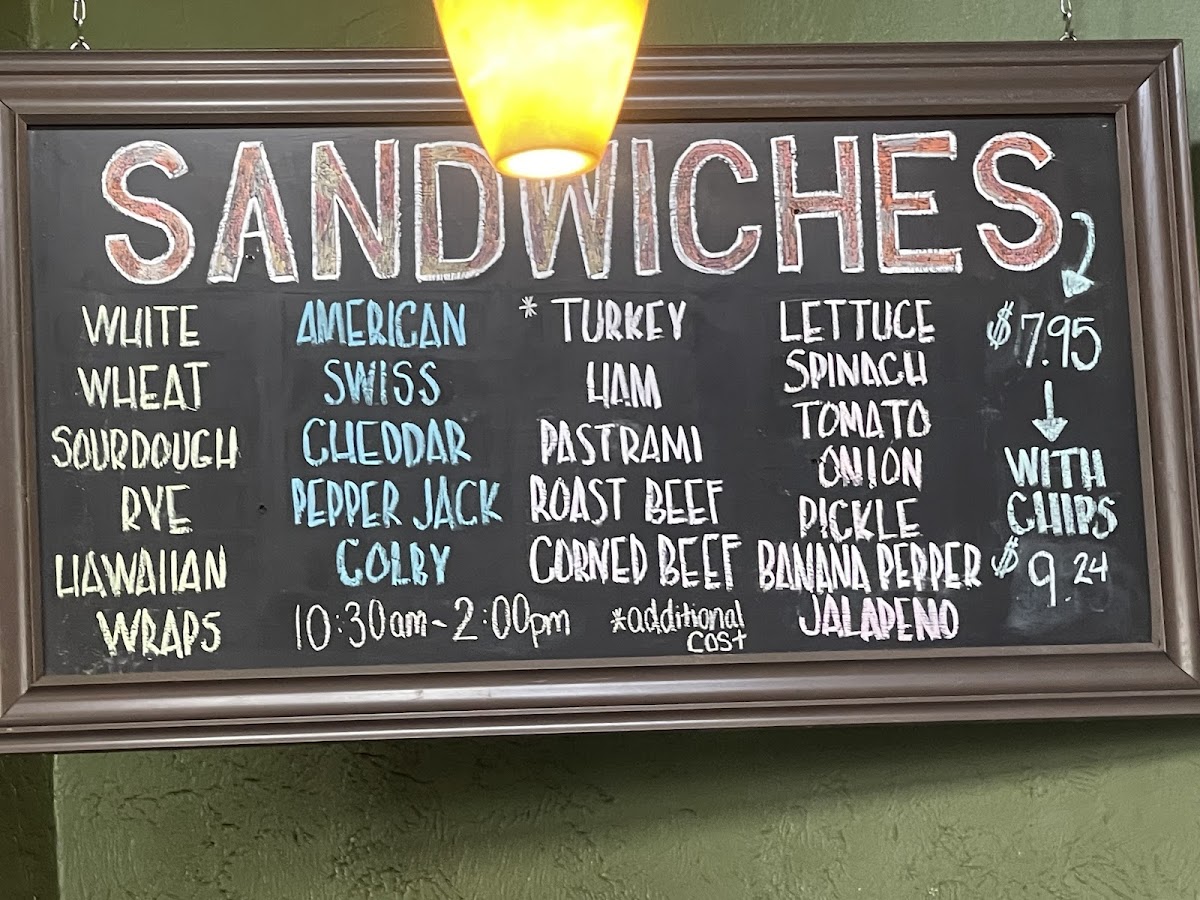 SANDWICHES
WHITE
WHEAT
SOURDOUGH
RYE
HAWAIIAN
WRAPS
AMERICAN
SWISS
CHEDDAR
PEPPER JACK
COLBY
10:30am - 2:00pm
* TURKEY
HAM
PASTRAMI
ROAST BEEF
CORNED BEEF
*additional
cost
LETTUCE
SPINACH
TOMATO
ONION
PICKLE
BANANA PEPPER
JALAPENO
$7.95
WITH
CHIPS
$9.24